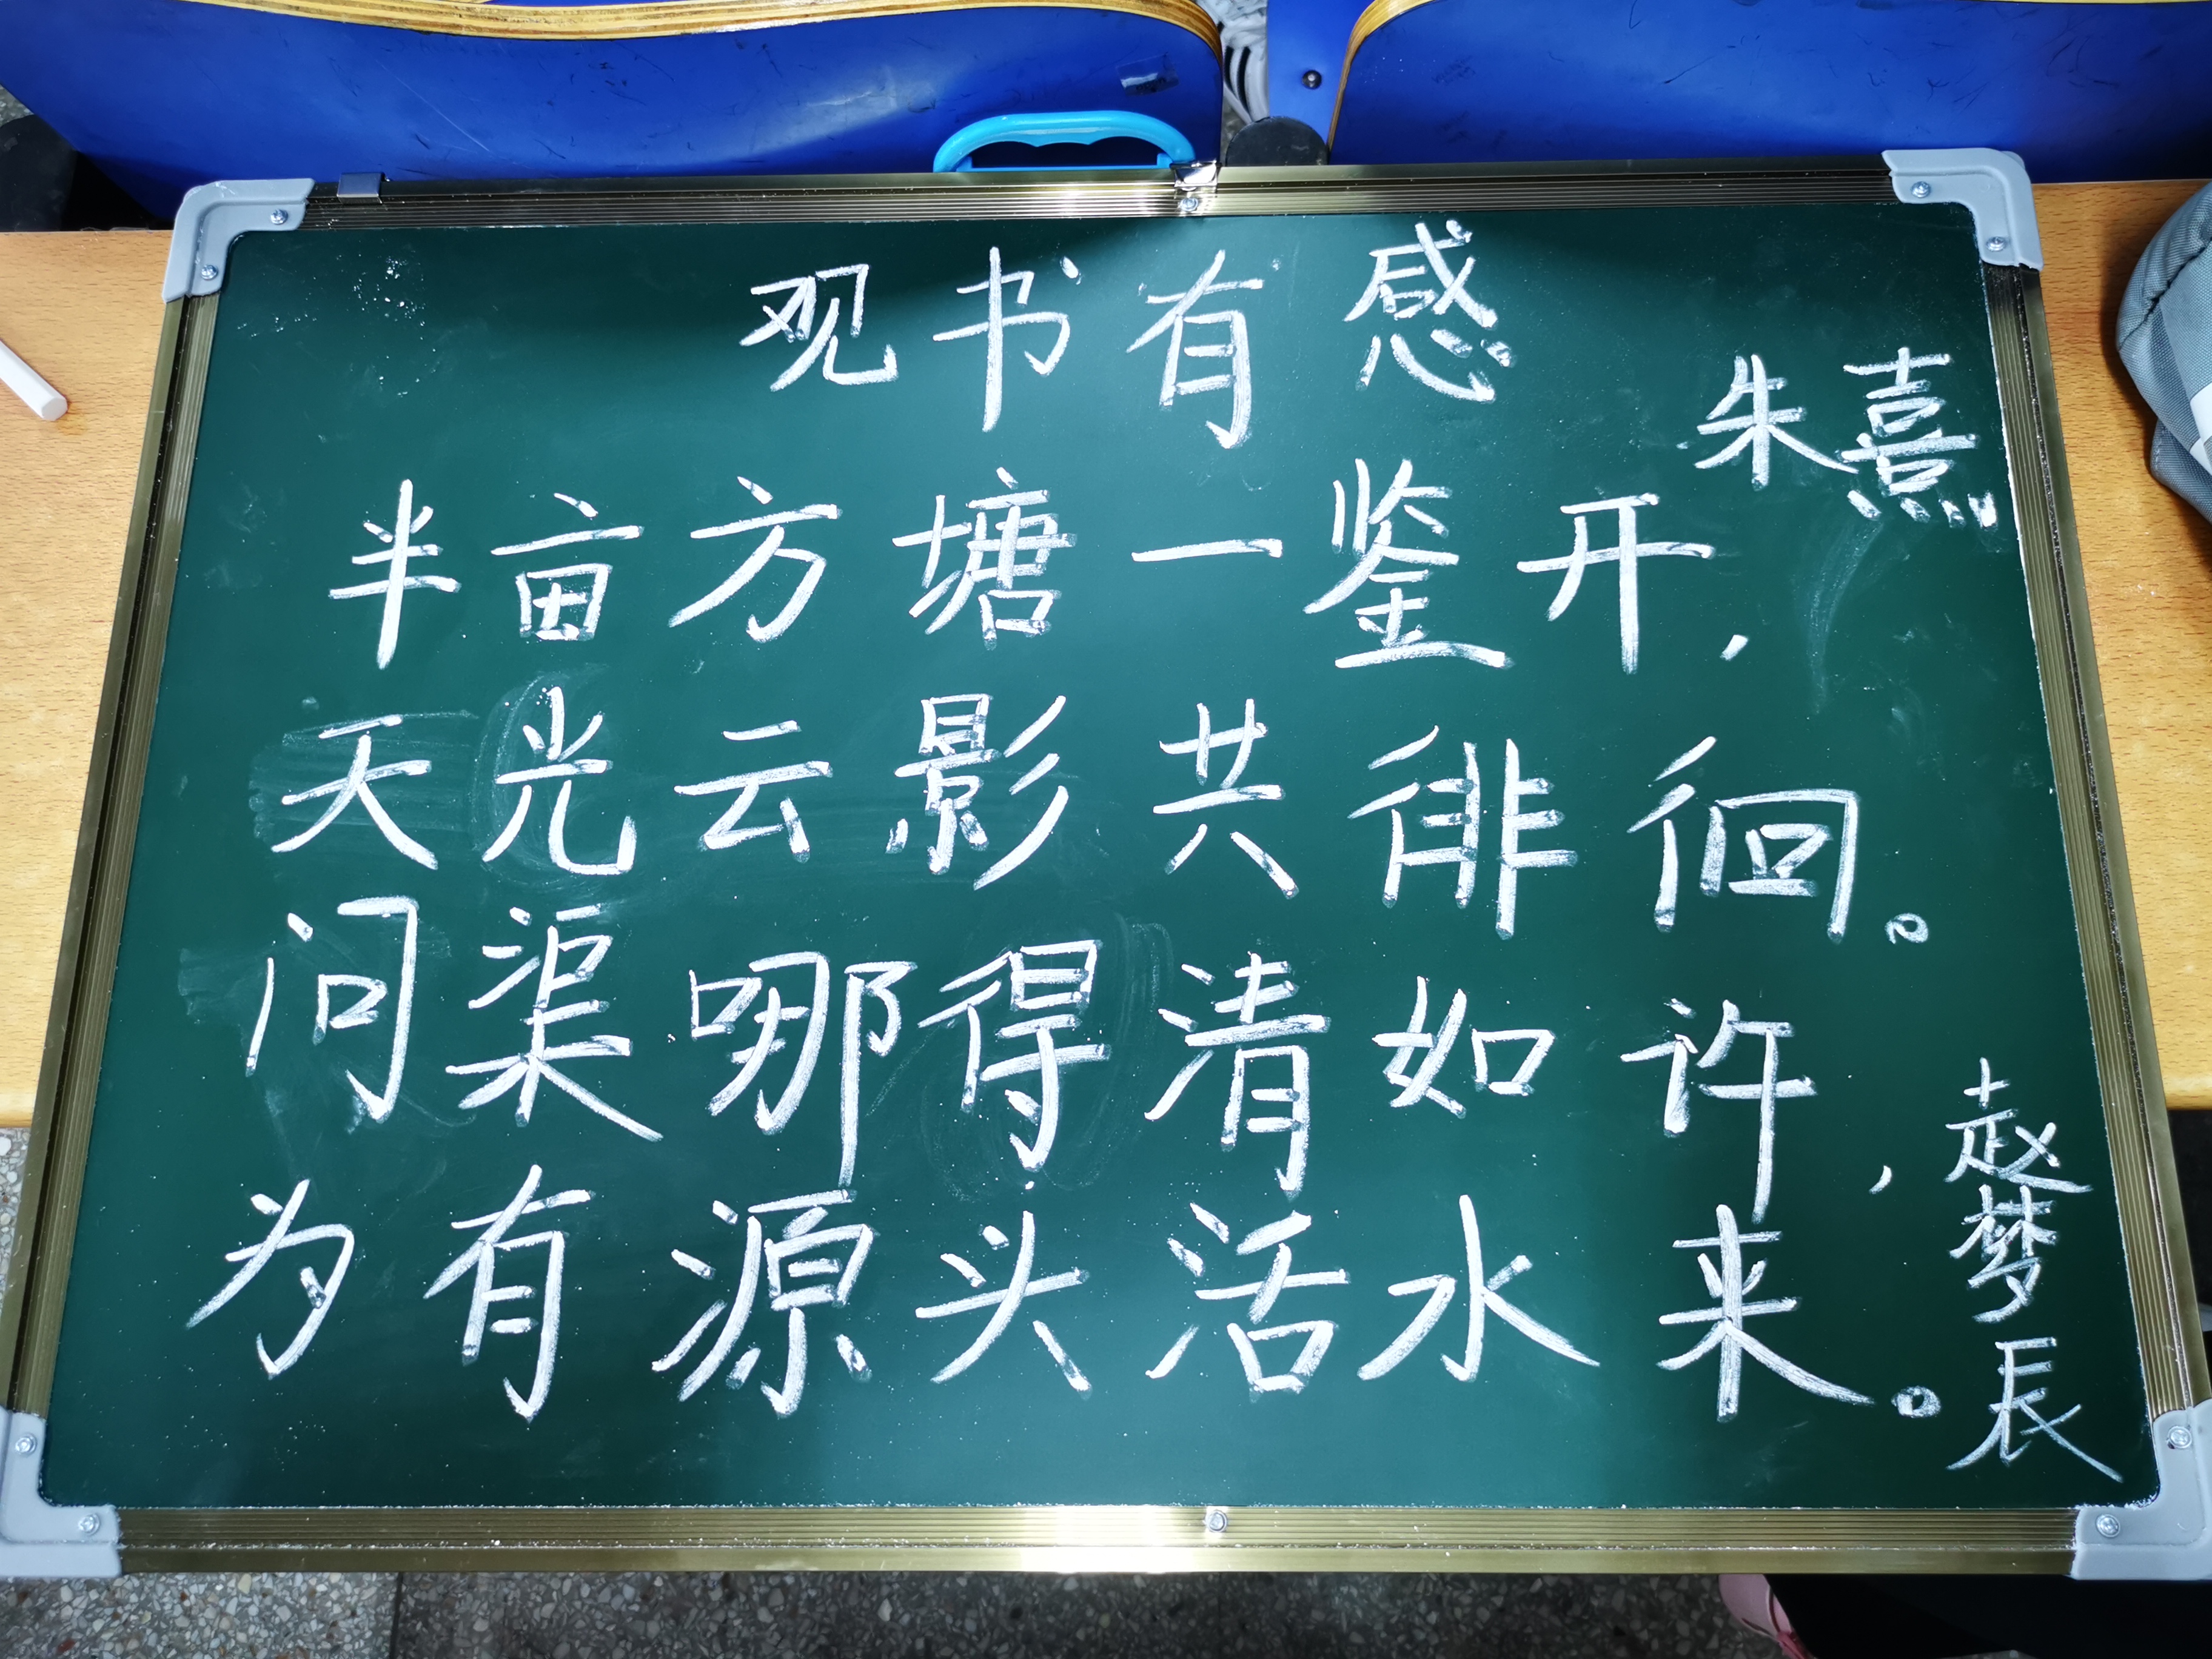 观书有感
朱熹
半亩方塘一鉴开，
天光云影共徘徊。
问渠哪得清如许，
为有源头活水来。
赵梦辰